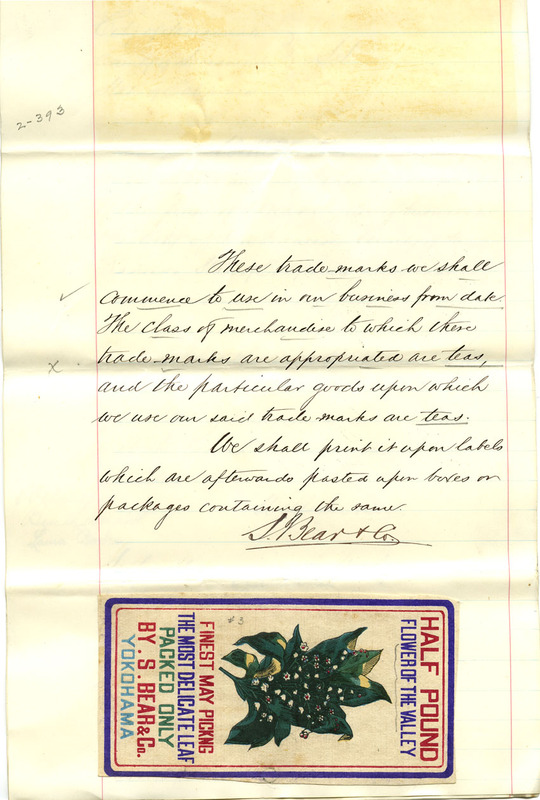 2-393
These trade marks we shall
commence to use in our business from date
The class of merchandise to which these
trade marks are appropriated are teas,
and the particular goods upon which
we use our said trade marks are teas.
We shall print it upon labels
which are afterwards pasted upon boxes or
packages containing the same.
S. Bear & Co.
HALF POUND
FLOWER OF THE VALLEY
#3
FINEST MAY PICKNG
THE MOST DELICATE LEAF
PACKED ONLY
BY. S. BEAR & Co.
YOKOHAMA